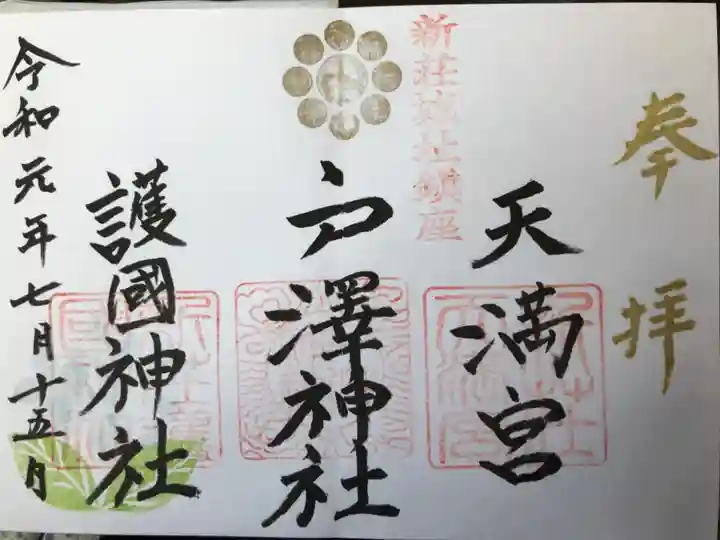 奉拝
天満宮
新荘城址鎮座
戸澤神社
護國神社
令和元年七月十五日